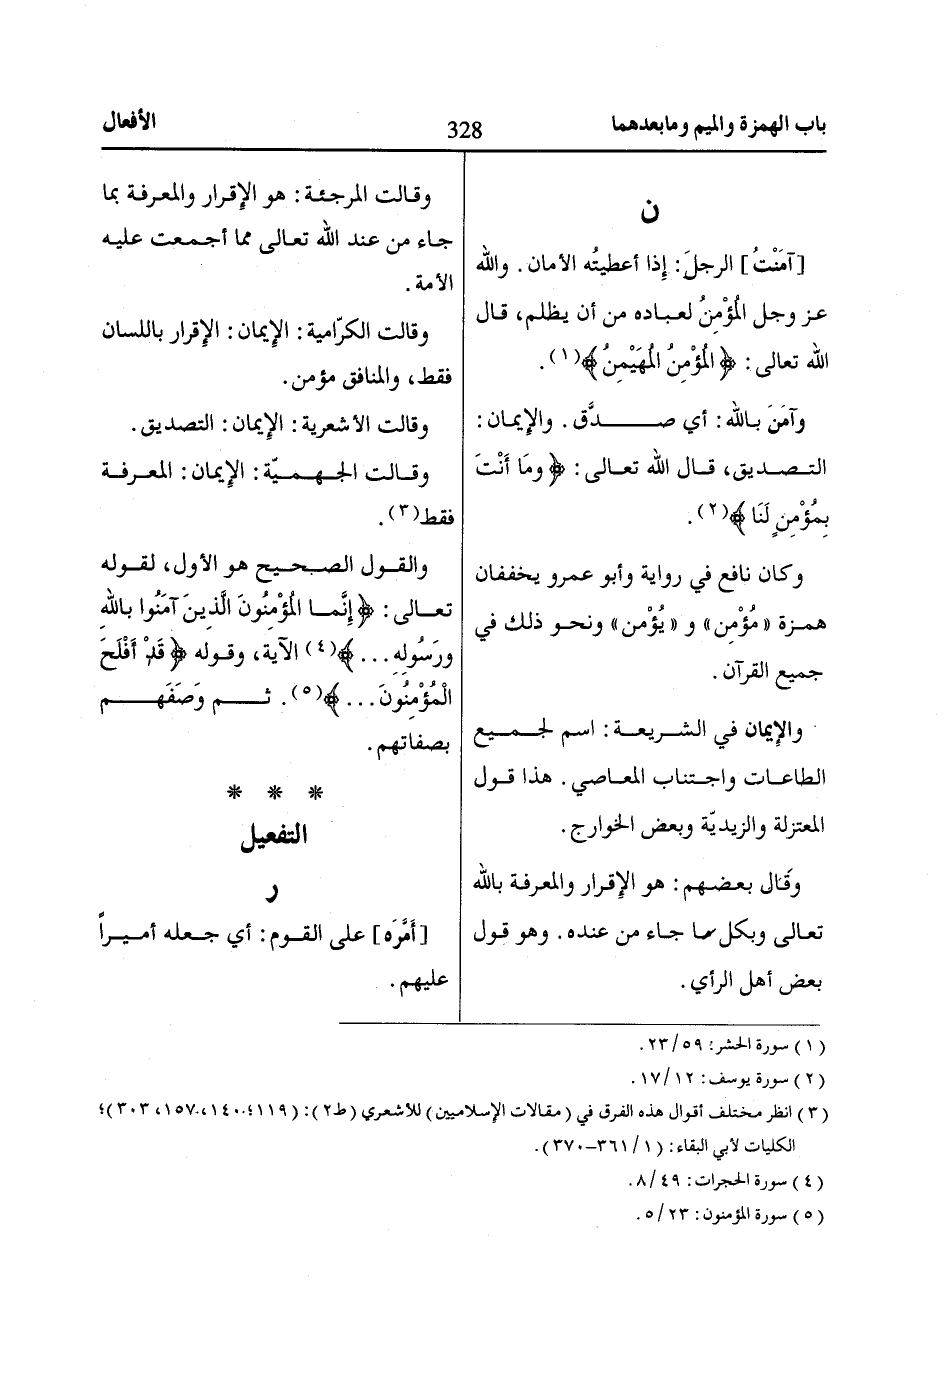 باب الهمزة والميم ومابعدهما
328
الأفعال
ن
[آمَنْتُ] الرجلَ: إذا أعطيتُه الأمان. والله
عز وجل المُؤْمِنُ لعباده من أن يظلم، قال
الله تعالى: ﴿المُؤْمِنُ المُهَيْمِنُ﴾(١).
وآمَنَ بالله: أي صدَّق. والإيمان:
التصديق، قال الله تعالى: ﴿وَمَا أَنْتَ
بِمُؤْمِنٍ لَنَا﴾(٢).
وكان نافع في رواية وأبو عمرو يخففان
همزة «مُؤْمِن» و «يُؤْمن» ونحو ذلك في
جميع القرآن.
والإيمان في الشريعة: اسم لجميع
الطاعات واجتناب المعاصي. هذا قول
المعتزلة والزيديّة وبعض الخوارج.
وقَال بعضهم: هو الإقرار والمعرفة بالله
تعالى وبكل ما جاء من عنده. وهو قول
بعض أهل الرأي.
وقالت المرجئة: هو الإقرار والمعرفة بما
جاء من عند الله تعالى مما أجمعت عليه
الأمة.
وقالت الكرّامية: الإيمان: الإقرار باللسان
فقط، والمنافق مؤمن.
وقالت الأشعرية: الإيمان: التصديق.
وقالت الجهميّة: الإيمان: المعرفة
فقط(٣).
والقول الصحيح هو الأول، لقوله
تعالى: ﴿إِنَّما المُؤْمِنُونَ الَّذينَ آمَنُوا بالله
ورَسُولِهِ...﴾(٤) الآية، وقوله ﴿قَدْ أَفْلَحَ
الْمُؤْمِنُونَ...﴾(٥). ثم وَصَفَهم
بصفاتهم.
* * *
التفعيل
ر
[أَمَّرَه] على القوم: أي جعله أميراً
عليهم.
(١) سورة الحشر: ٢٣/٥٩.
(٢) سورة يوسف: ١٧/١٢.
(٣) انظر مختلف أقوال هذه الفرق في (مقالات الإسلاميين) للأشعري (ط٢): (١١٩؛١٤٠،١٥٧، ٣٠٣)؛
الكليات لأبي البقاء: (٣٦١/١-٣٧٠).
(٤) سورة الحجرات: ٨/٤٩.
(٥) سورة المؤمنون: ٥/٢٣.